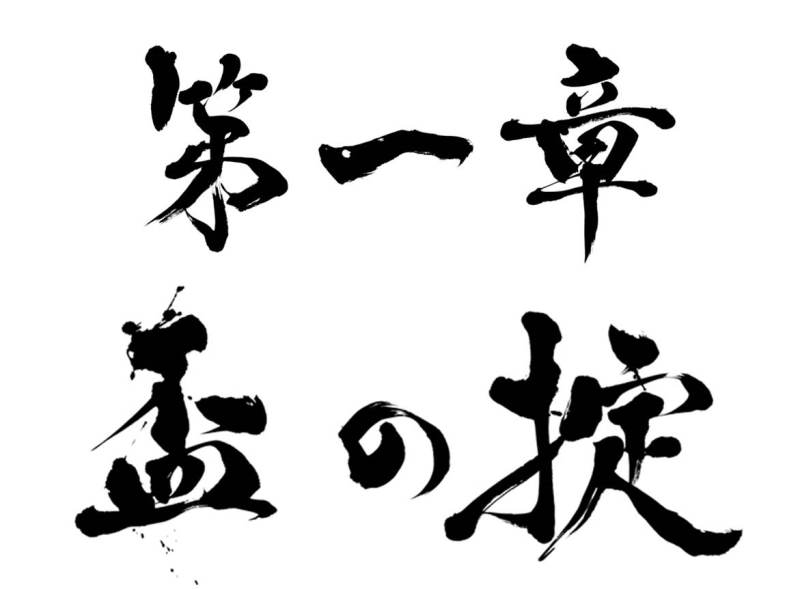 第一章
盃の掟